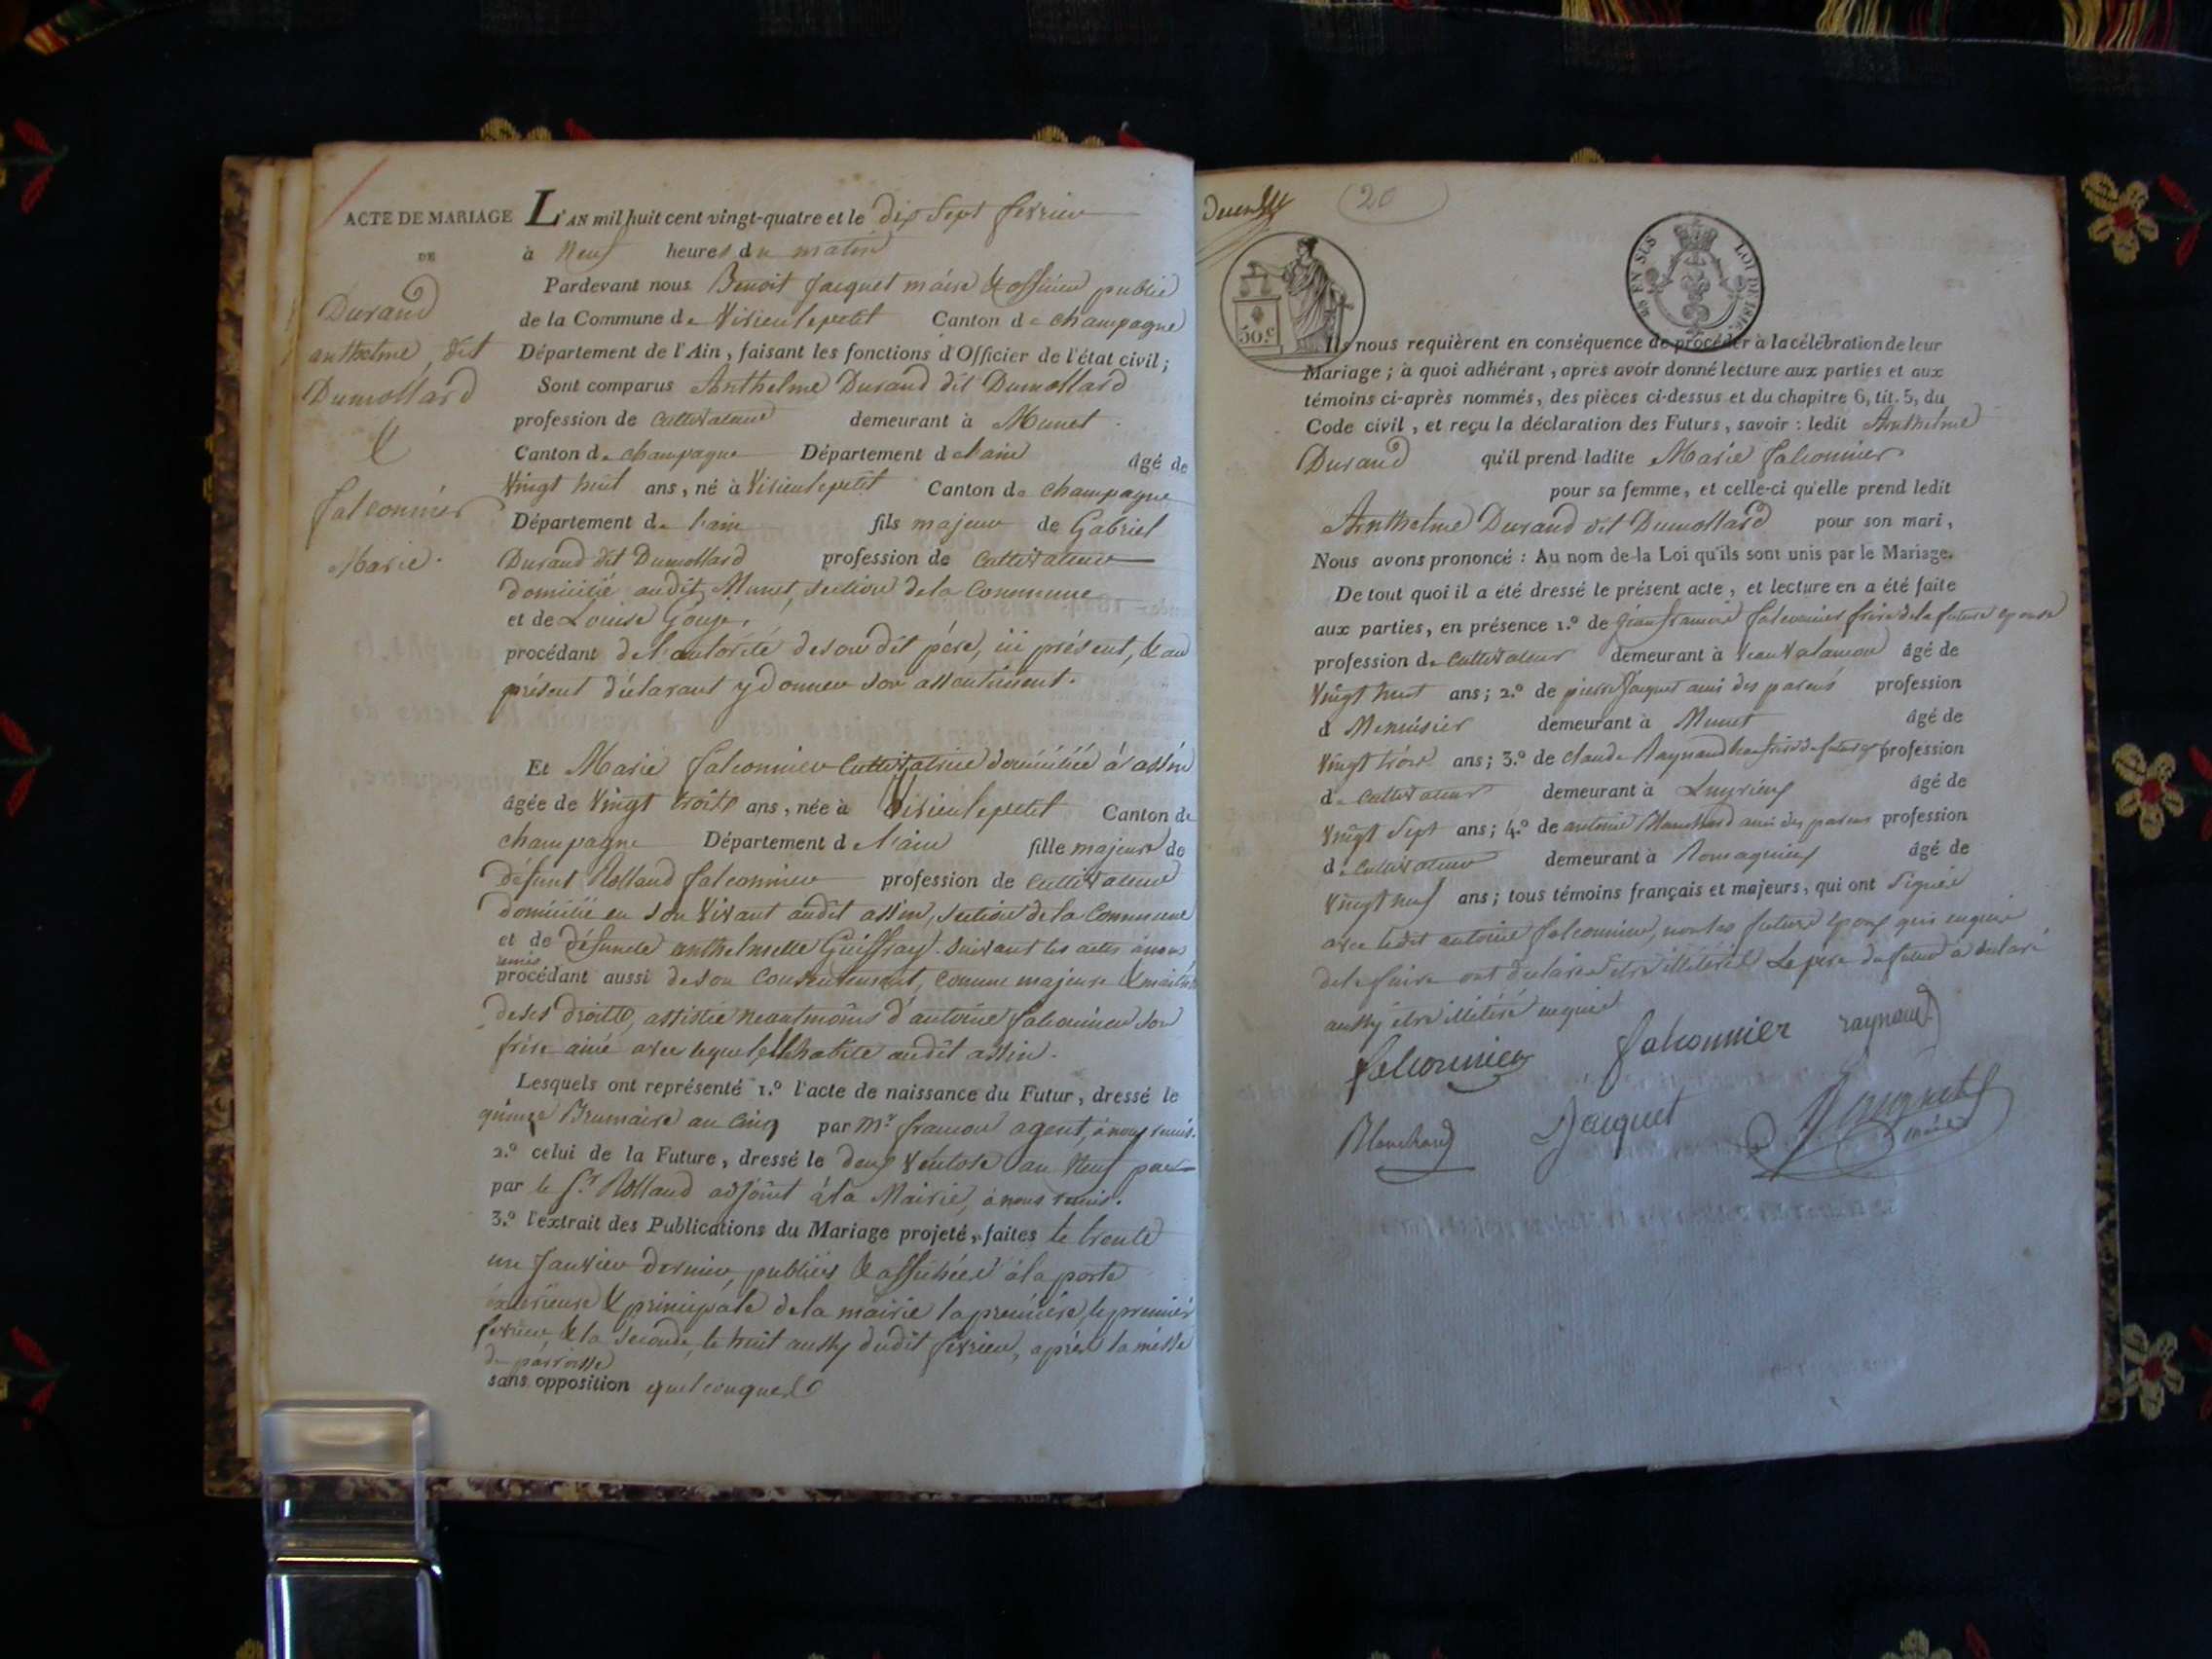 ACTE DE MARIAGE
DE
Durand
anthelme, dit
Dumollard
&
falconnier
Marie.
L'AN mil huit cent vingt-quatre et le dix Sept fevrier
à Neuf heures du matin
Pardevant nous Benoit Jacquet maire & officier public
de la Commune de Virieulepetit Canton de champagne
Département de l'Ain, faisant les fonctions d'Officier de l'état civil;
Sont comparus Anthelme Durand dit Dumollard
profession de Cultivateur demeurant à Munet
Canton de champagne Département de l'ain âgé de
Vingt huit ans, né à Virieulepetit Canton de champagne
Département de l'ain fils majeur de Gabriel
Durand dit Dumollard profession de Cultivateur
domicilié audit Munet, section de la Commune
et de Louise Gouje,
procédant de l'autorité de son dit père, ici présent, & au
présent déclarant y donner son assentiment.
Et Marie falconnier Cultivatrice domiciliée à assin
âgée de Vingt trois ans, née à Virieulepetit Canton de
champagne Département de l'ain fille majeure de
défunt Rolland falconnier profession de Cultivateur
domicilié en son Vivant audit assin, section de la Commune
et de défuncte anthelmette Guiffray. Suivant les actes à nous
remis
procédant aussi de son Consentement, comme majeure & maitresse
de ses droits, assistée neantmoins d'antoine falconnier son
frère ainé avec lequel elle habite audit assin.
Lesquels ont représenté 1.º l'acte de naissance du Futur, dressé le
quinze Brumaire an Cinq par Mr francon agent, à nous remis.
2.º celui de la Future, dressé le deux Ventose an Neuf par
par le Sr. Rolland adjoint à la Mairie, à nous remis.
3.º l'extrait des Publications du Mariage projeté, faites le trente
un Janvier dernier, publiées & affichées à la porte
extérieure & principale de la mairie la première, le premier
fevrier, & la seconde, le huit aussy dudit fevrier, après la messe
de parroisse
sans opposition quelconque
20
50.c
EN SUS LOI DE 1816
Ils nous requièrent en conséquence de procéder à la célébration de leur
Mariage; à quoi adhérant, après avoir donné lecture aux parties et aux
témoins ci-après nommés, des pièces ci-dessus et du chapitre 6, tit. 5, du
Code civil, et reçu la déclaration des Futurs, savoir: ledit Anthelme
Durand qu'il prend ladite Marie falconnier
pour sa femme, et celle-ci qu'elle prend ledit
Anthelme Durand dit Dumollard pour son mari,
Nous avons prononcé: Au nom de la Loi qu'ils sont unis par le Mariage.
De tout quoi il a été dressé le présent acte, et lecture en a été faite
aux parties, en présence 1.º de falconnier frère de la future epouse
profession de Cultivateur demeurant à âgé de
Vingt huit ans; 2.º de pierre Jacquet ami des parties profession
d Menuisier demeurant à Munet âgé de
Vingt trois ans; 3.º de claude Raynaud profession
de Cultivateur demeurant à Luyrieux âgé de
Vingt Sept ans; 4.º de antoine Blanchard ami des parties profession
de Cultivateur demeurant à Romagnieux âgé de
Vingt neuf ans; tous témoins français et majeurs, qui ont Signés
avec ledit antoine falconnier, non les futurs epoux qui enquis
de le faire ont declarés etre illitérés Le père du futur a déclaré
aussy être illitéré enquis
falconnier falconnier raynaud
Blanchard Jacquet Jacquet
maire